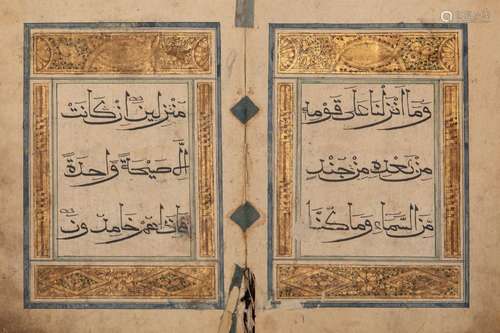 وما انزلنا على قومه
من بعده من جند
من السماء وما كنّا
منزلين ان كانت
الّا صيحةً واحدةً
فاذا هم خامدون